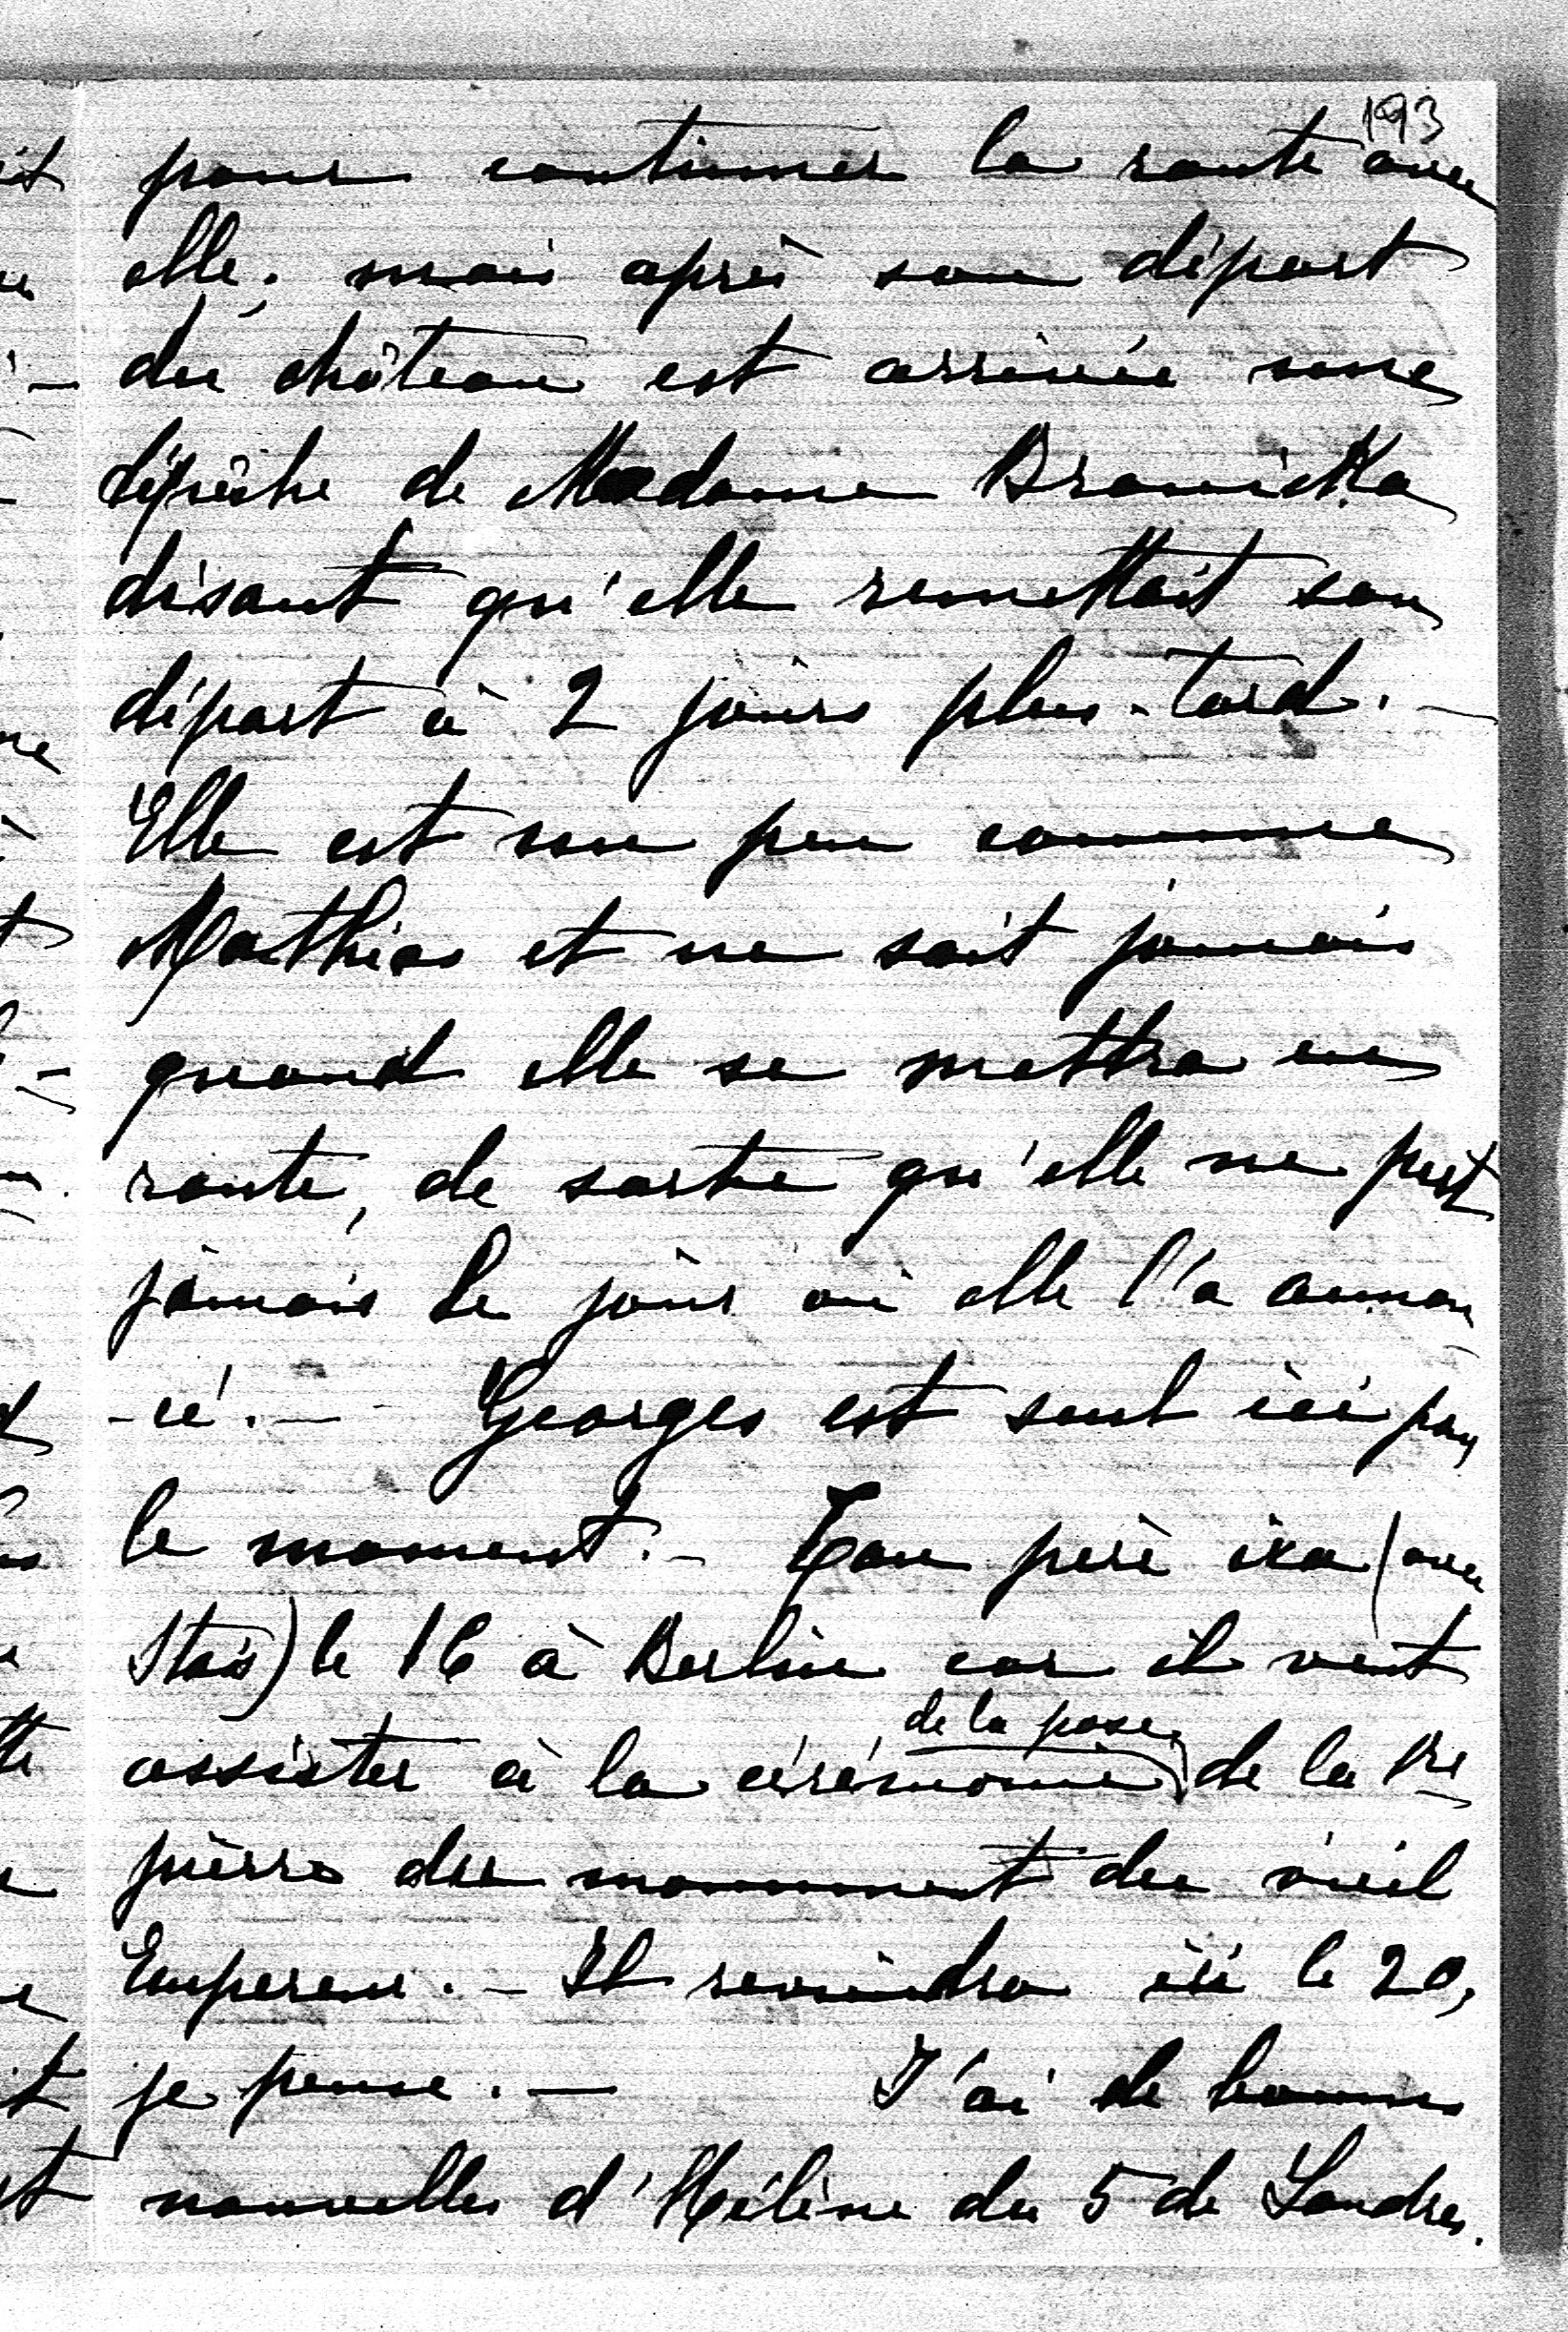 193
pour continuer la route avec
elle; mais après son départ
du château est arrivée une
dépêche de Madame Branicka
disant qu'elle remettait son
départ à 2 jours plus-tard. —
Elle est un peu comme
Mathias et ne sait jamais
quand elle se mettra en
route, de sorte qu'elle ne part
jamais le jour où elle l'a annon
-cé. — Georges est seul ici pour
le moment. — Ton père ira (avec
Stas) le 16 à Berlin car il veut
de la pose
assister à la cérémonie de la 1re
pierre du monument du vieil
Empereur. — Il reviendra ici le 20,
je pense. — J'ai de bonnes
nouvelles d'Hélène du 5 de Londres.